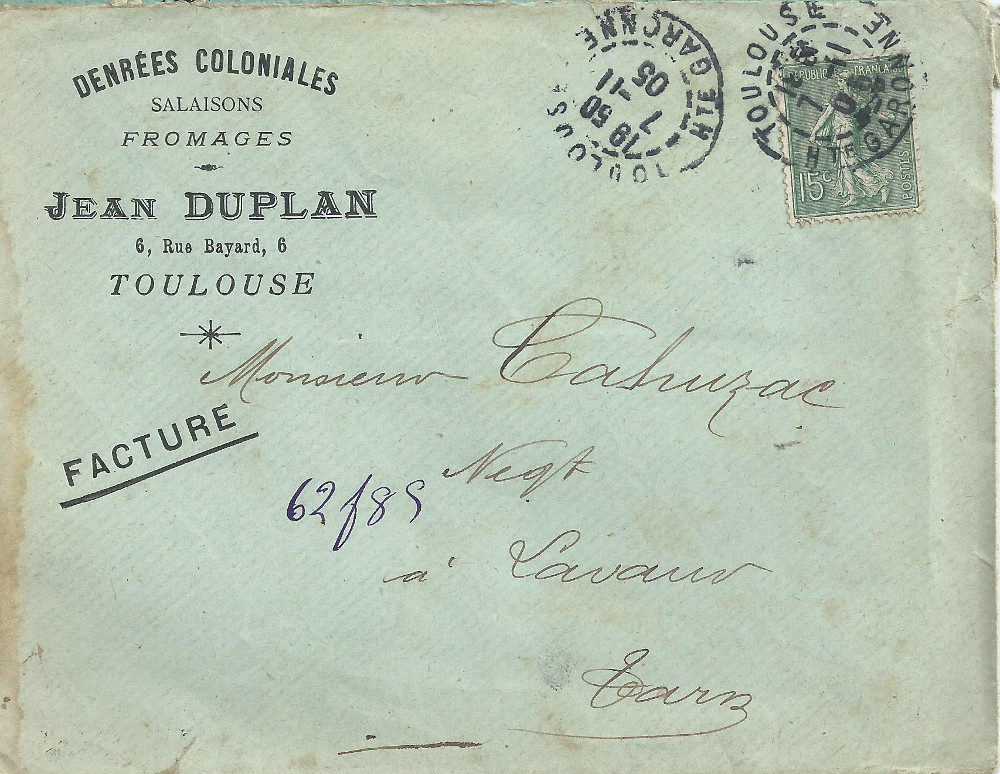 DENRÉES COLONIALES
SALAISONS
FROMAGES
JEAN DUPLAN
6, Rue Bayard, 6
TOULOUSE
TOULOUSE
19 50
7 - 11
05
HTE GARONNE
TOULOUSE
7 - 11
HTE GARONNE
REPUBLIQUE FRANCAISE
15c
POSTES
Monsieur Cahuzac
FACTURE
Negt
62f85
à Lavaur
Tarn